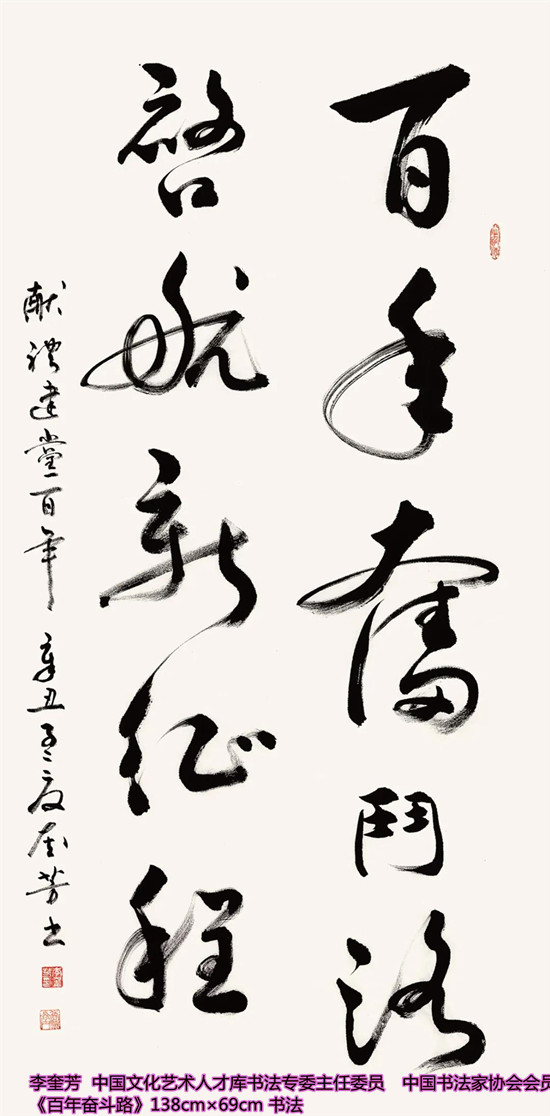 百年奮鬥路
啓航新征程
献礼建党百年 辛丑孟夏奎芳书
李奎芳 中国文化艺术人才库书法专委主任委员 中国书法家协会会员
《百年奋斗路》138cm×69cm 书法